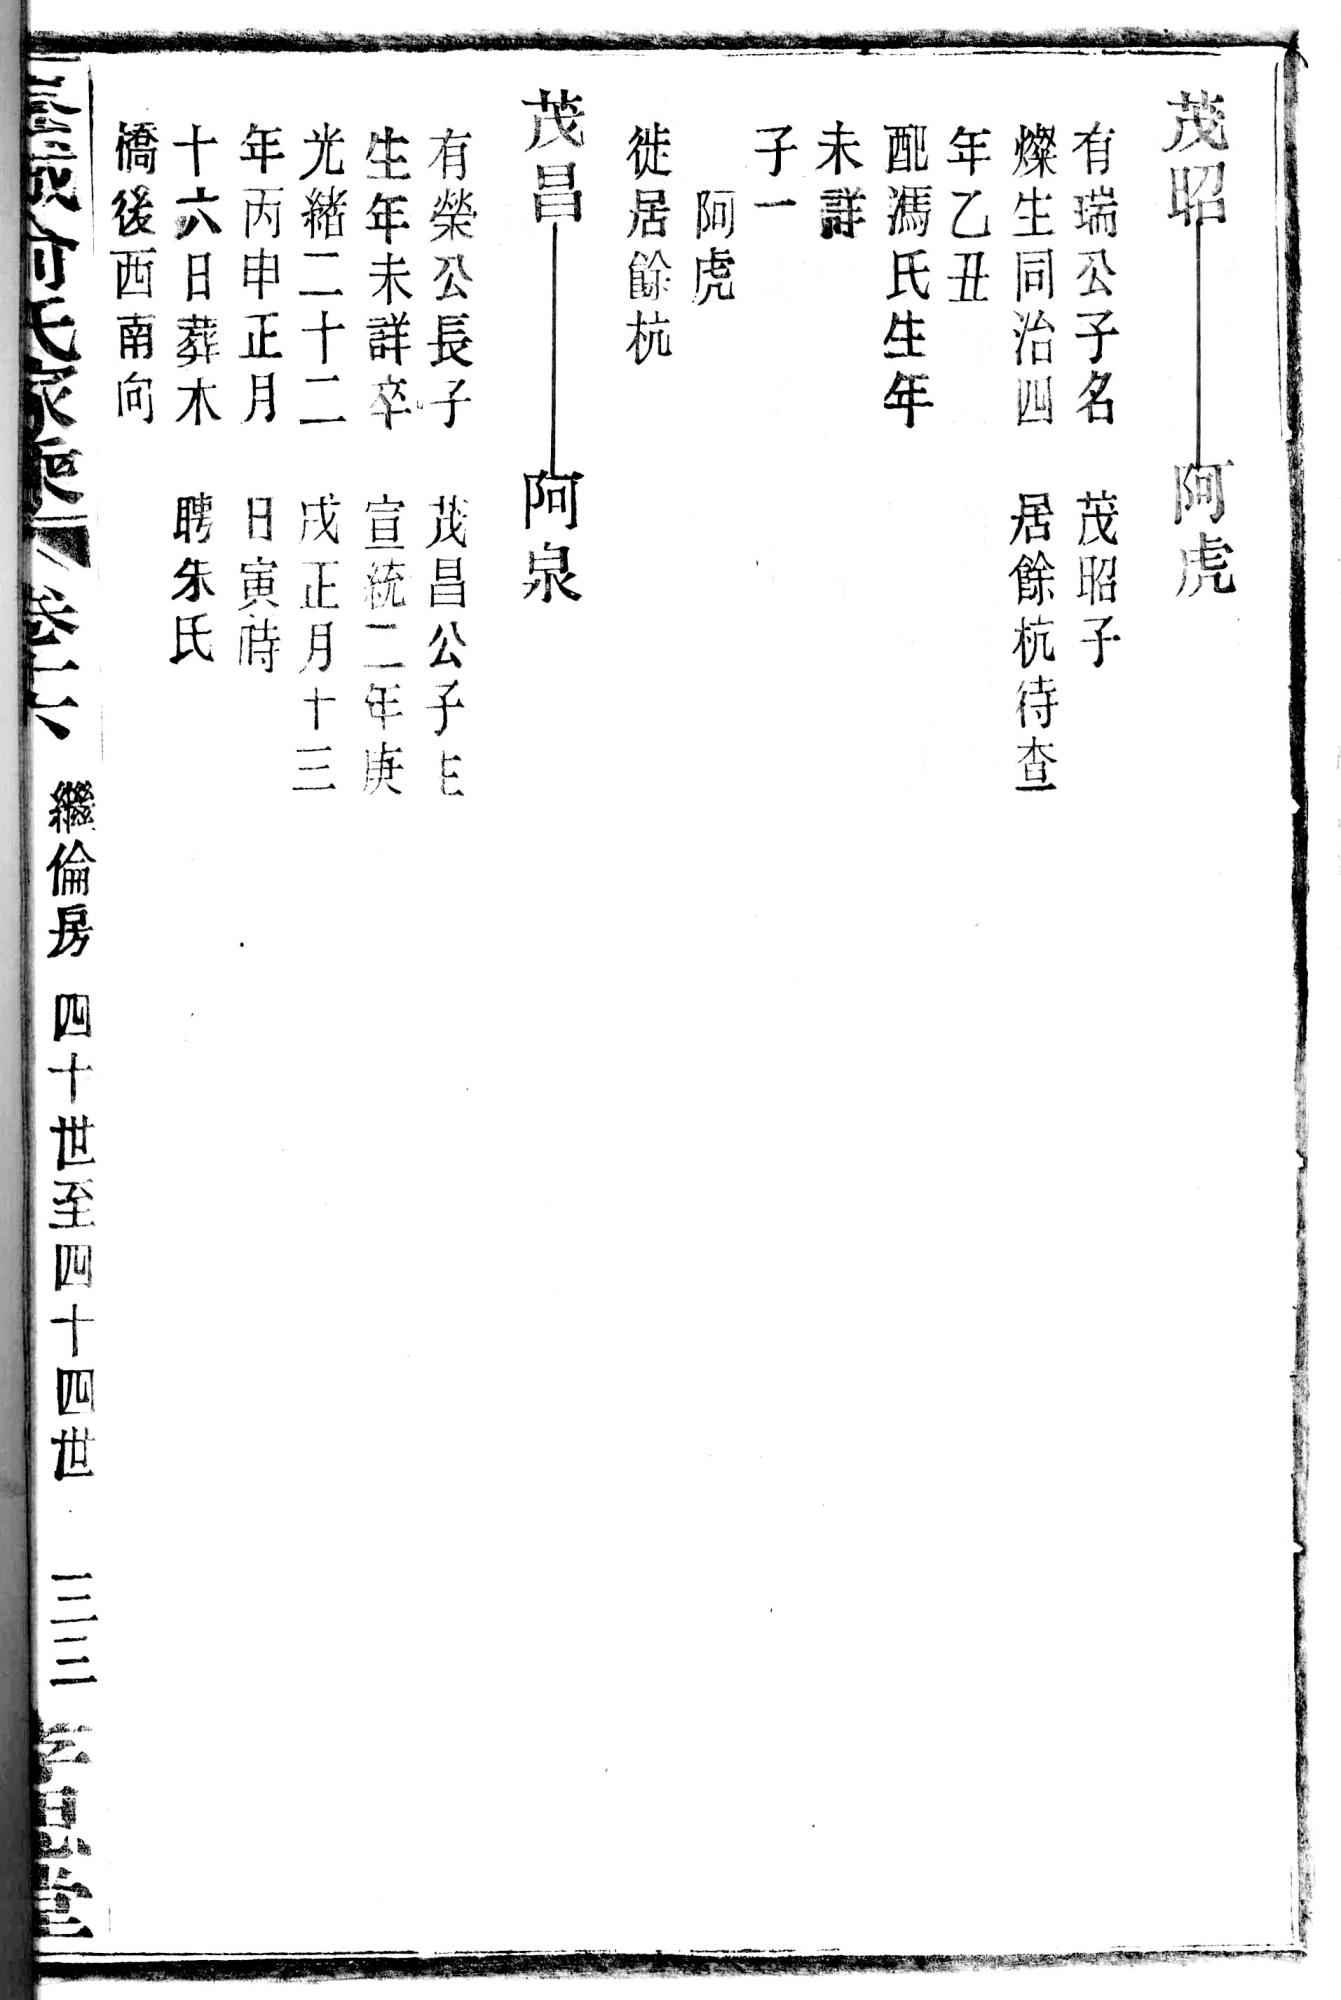 茂昭
阿虎
有瑞公子名
燦生同治四
年乙丑
配馮氏生年
未詳
子一
阿虎
徙居餘杭
茂昭子
居餘杭待查
茂昌
阿泉
有榮公長子
生年未詳卒
光緒二十二
年丙申正月
十六日葬木
橋後西南向
茂昌公子生
宣統二年庚
戌正月十三
日寅時
聘朱氏
俞氏家乘
卷十六
繼倫房
四十世至四十四世
三二
孝思堂